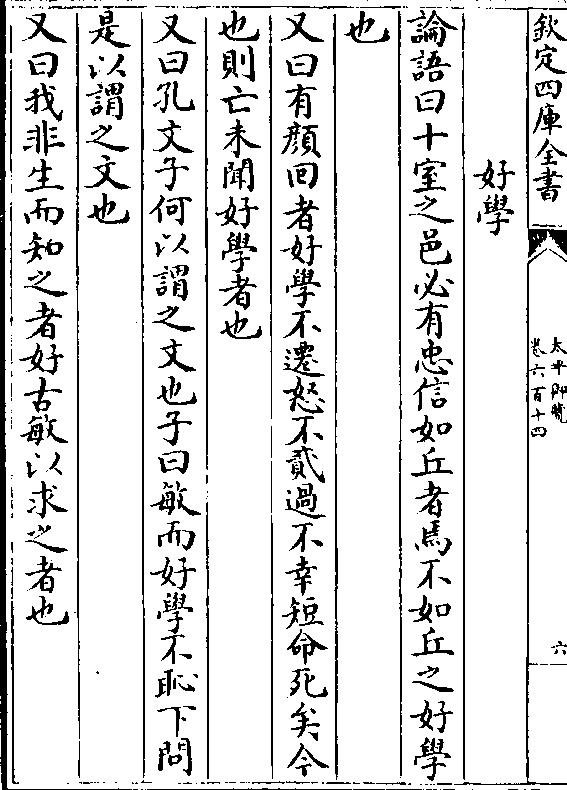 欽定四庫全書
太平御覽
卷六百十四
六
好學
論語曰十室之邑必有忠信如丘者馬不如丘之好學
也
又曰有顏回者好學不遷怒不貳過不幸短命死矣今
也則亡未聞好學者也
又曰孔文子何以謂之文也子曰敏而好學不恥下問
是以謂之文也
又曰我非生而知之者好古敏以求之者也